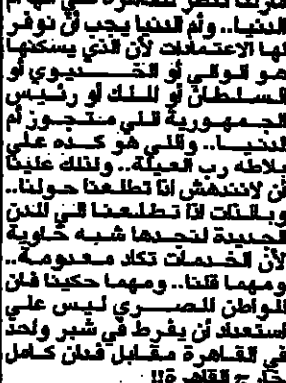 مازلنا ننظر للقاهرة على أنها أم
الدنيا.. وأم الدنيا يجب أن نوفر
لها الاعتمادات لأن الذي يسكنها
هو الوالي أو الخديوي أو
السلطان أو الملك أو رئيس
الجمهورية اللي متجوز أم
الدنيا.. واللي هو كده علي
بلاطه رب العيلة.. ولذلك علينا
أن لانندهش اذا تطلعنا حولنا..
وبالذات اذا تطلعنا الي المدن
الجديدة لنجدها شبه خاوية
لأن الخدمات تكاد معدومة..
ومهما قلنا.. ومهما حكينا فان
المواطن المصري ليس علي
استعداد أن يفرط في شبر واحد
في القاهرة مقابل فدان كامل
خارج القاهرة!!